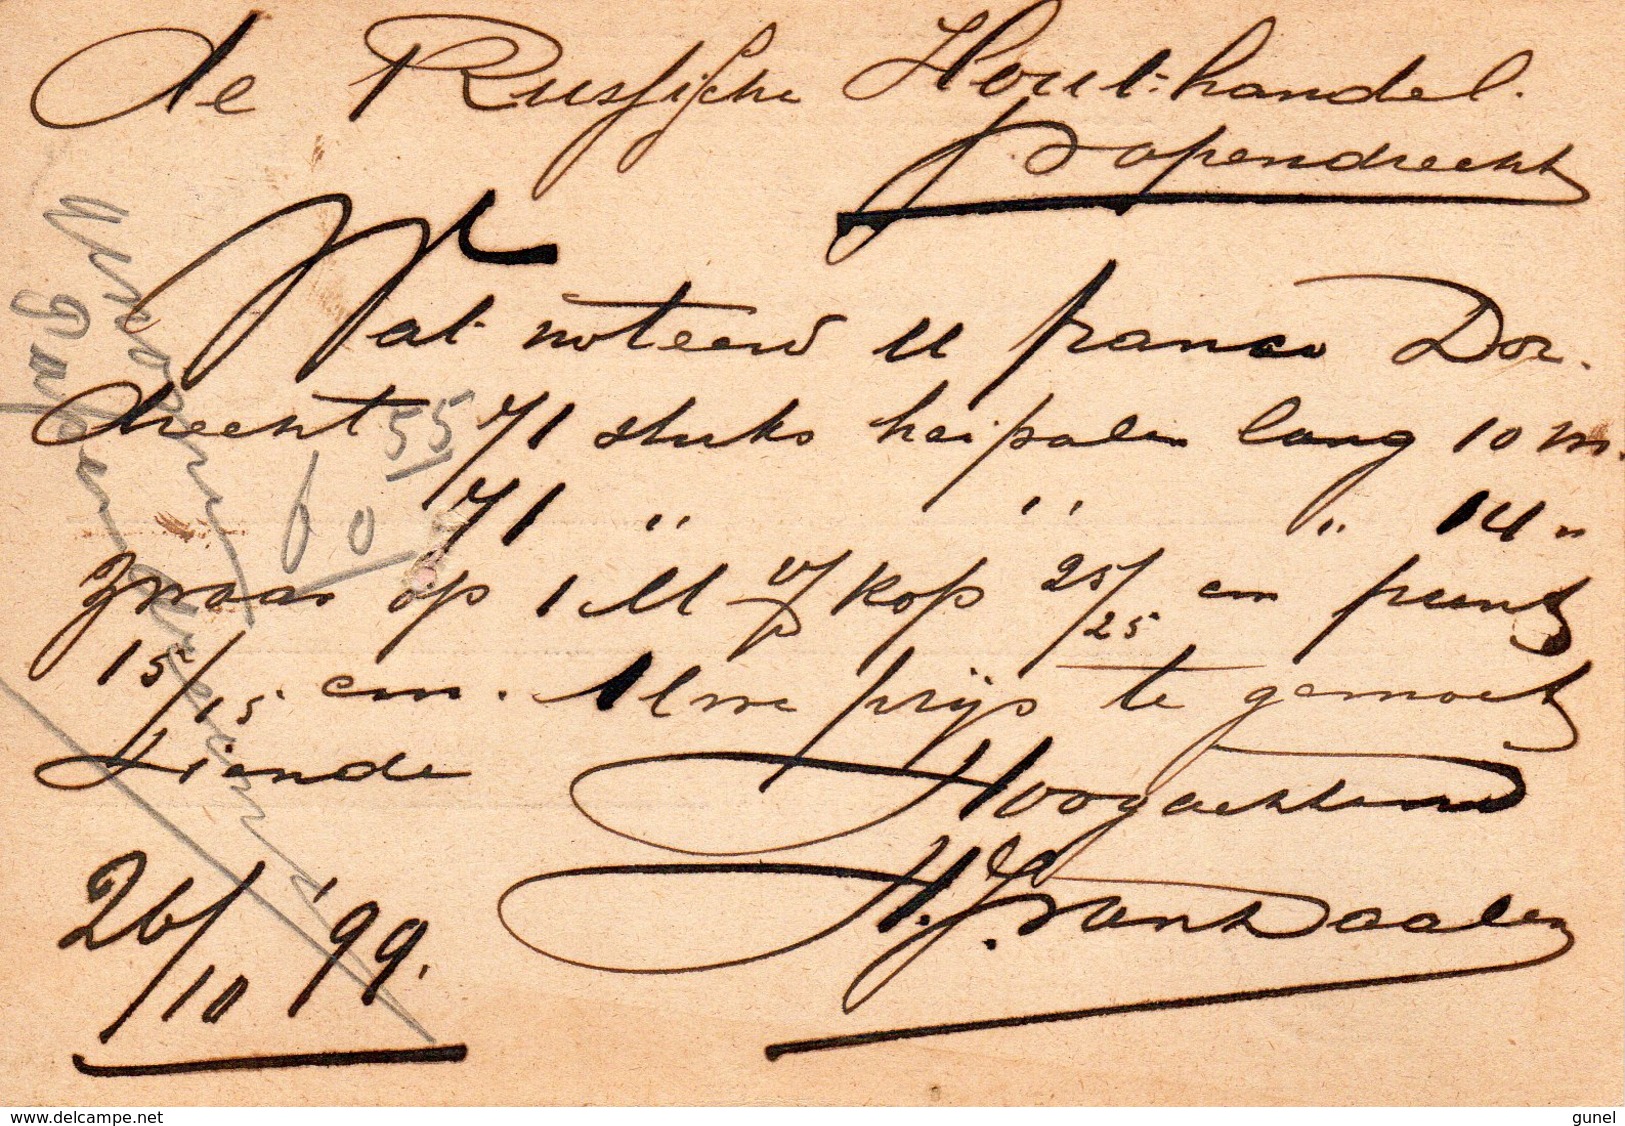 de Russische Hout-handel.
Papendrecht
Wat noteerd u franco Dor-
drecht 71 stuks heipalen lang 10 m.
71 " " " 14 "
zwaar op 1 M v/d kop 25/25 cm punt
15/15 cm. Uwe prijs te gemoet
ziende Hoogachtend
H.J. van Daalen
26/10 '99.
55
60
www.delcampe.net
gunel